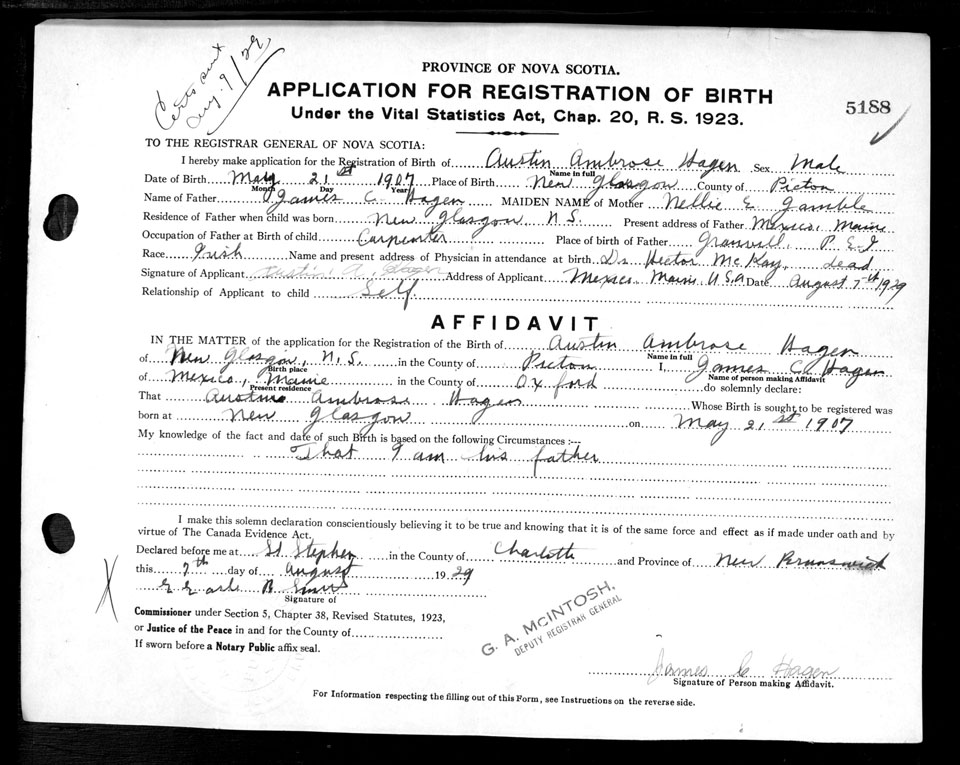 Certs sent
Aug. 9/29
PROVINCE OF NOVA SCOTIA.
APPLICATION FOR REGISTRATION OF BIRTH
Under the Vital Statistics Act, Chap. 20, R. S. 1923.
5188
TO THE REGISTRAR GENERAL OF NOVA SCOTIA:
I hereby make application for the Registration of Birth of Austin Ambrose Hagen Sex Male
Name in full
Date of Birth May 21st 1907 Place of Birth New Glasgow County of Picton
Month Day Year
Name of Father James C. Hagen MAIDEN NAME of Mother Nellie E. Gamble
Residence of Father when child was born New Glasgow N.S. Present address of Father Mexico, Maine
Occupation of Father at Birth of child Carpenter Place of birth of Father Granvill, P.E.I
Race Irish Name and present address of Physician in attendance at birth Dr Hector McKay, dead
Signature of Applicant Austin A. Hagen Address of Applicant Mexico Maine U.S.A Date August 7th 1929
Relationship of Applicant to child Self
AFFIDAVIT
IN THE MATTER of the application for the Registration of the Birth of Austin Ambrose Hagen
Name in full
of New Glasgow, N.S. in the County of Picton I, James C. Hagen
Birth place Name of person making Affidavit
of Mexico, Maine in the County of Oxford do solemnly declare:
Present residence
That Austin Ambrose Hagen Whose Birth is sought to be registered was
born at New Glasgow on May 21st 1907
My knowledge of the fact and date of such Birth is based on the following Circumstances :---
That I am his father
I make this solemn declaration conscientiously believing it to be true and knowing that it is of the same force and effect as if made under oath and by
virtue of The Canada Evidence Act.
Declared before me at St Stephen in the County of Charlotte and Province of New Brunswick
this 7th day of August 1929
Signature of
Commissioner under Section 5, Chapter 38, Revised Statutes, 1923,
or Justice of the Peace in and for the County of
If sworn before a Notary Public affix seal.
G. A. McINTOSH,
DEPUTY REGISTRAR GENERAL
James C Hagen
Signature of Person making Affidavit.
For Information respecting the filling out of this Form, see Instructions on the reverse side.